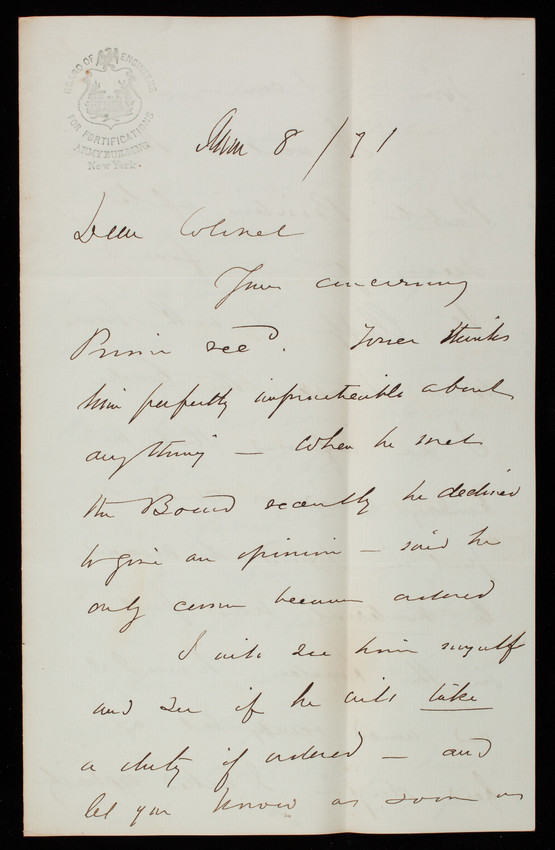 BOARD OF ENGINEERS
FOR FORTIFICATIONS
ARMY BUILDING
New York.
8 / 71
Dear Colonel
Yours concerning
Prime recd. Tower thinks
him perfectly impracticable about
anything — When he met
the Board recently he declined
to give an opinion — said he
only came because ordered
I will see him myself
and see if he will take
a duty if ordered — and
let you know as soon as